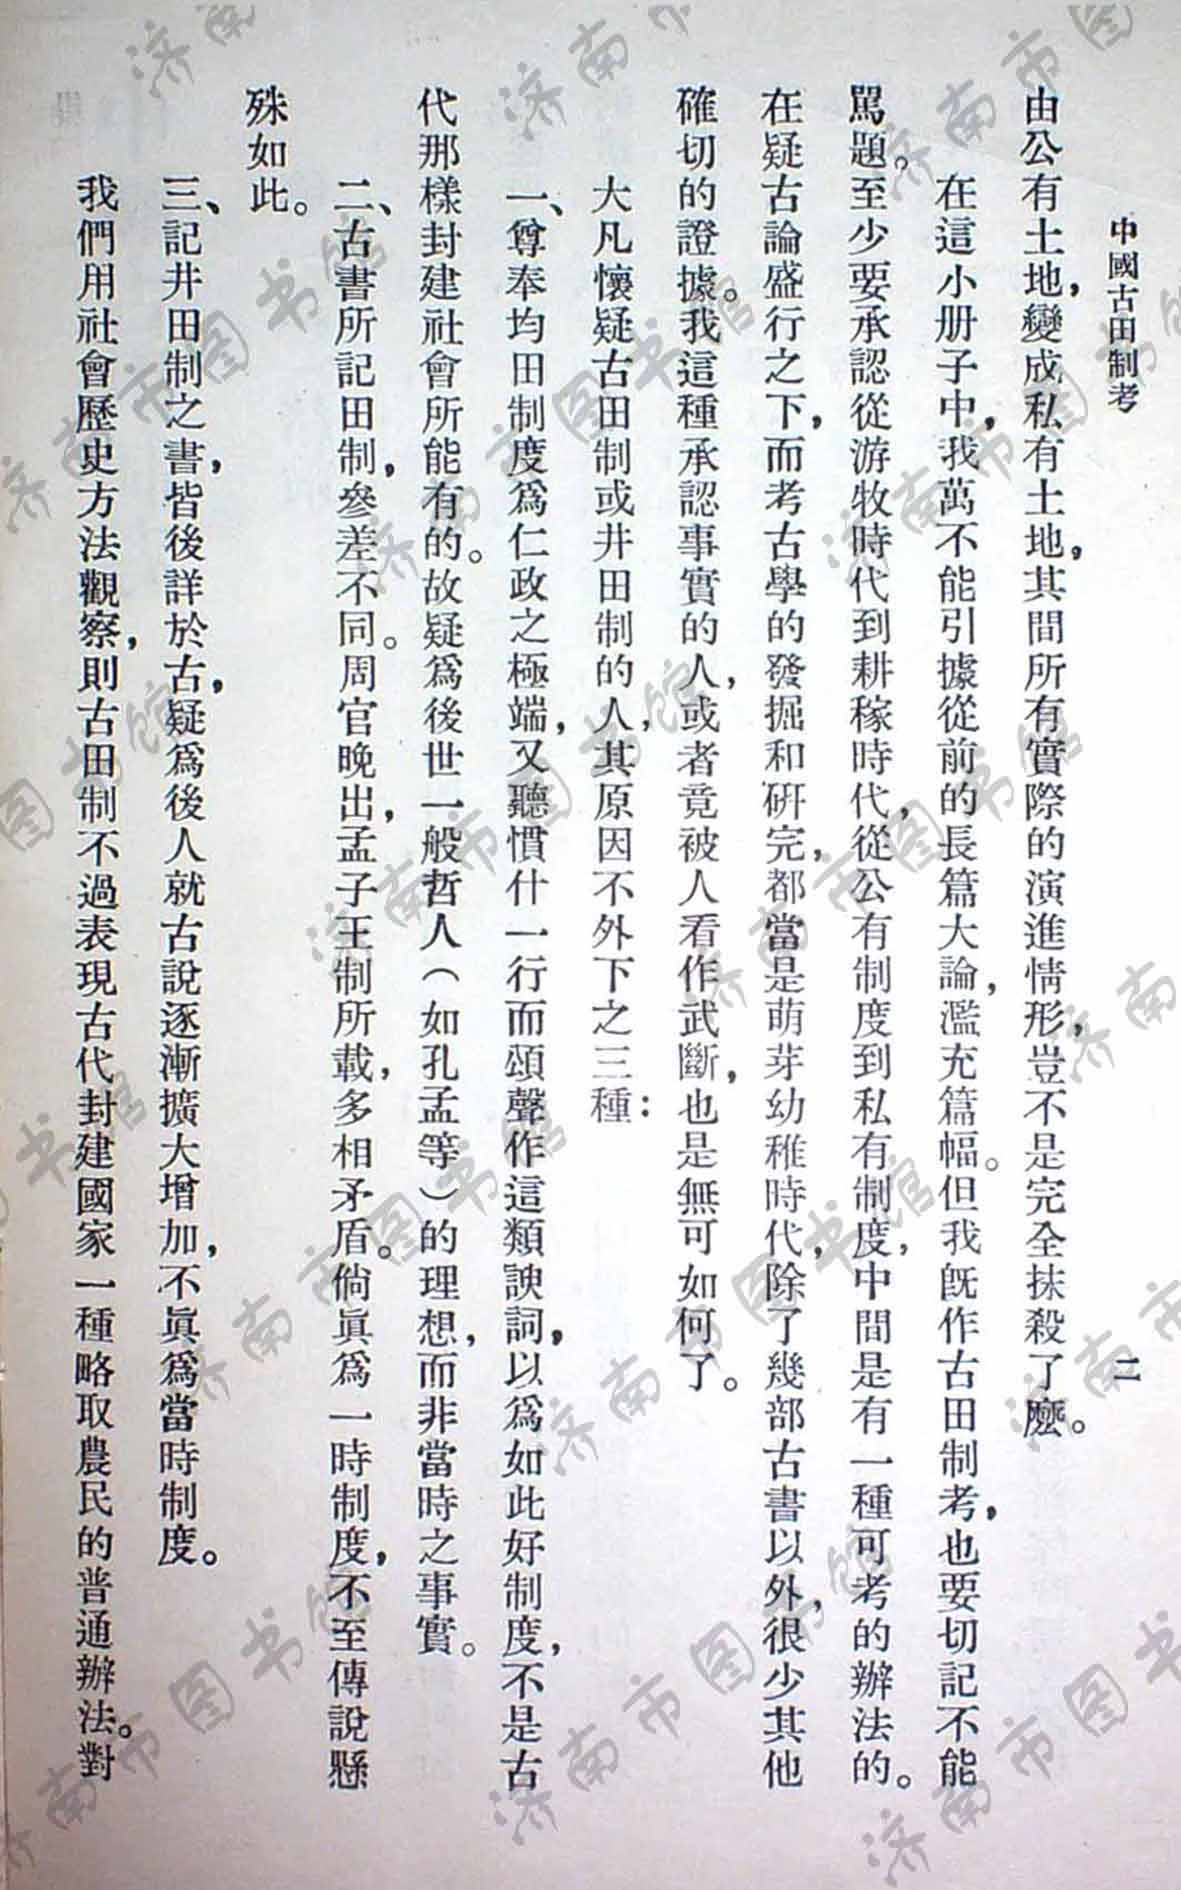 中國古田制考
二
由公有土地，變成私有土地，其間所有實際的演進情形，豈不是完全抹殺了麼。
在這小册子中，我萬不能引據從前的長篇大論，濫充篇幅。但我旣作古田制考，也要切記不能
罵題。至少要承認從游牧時代到耕稼時代，從公有制度到私有制度，中間是有一種可考的辦法的。
在疑古論盛行之下，而考古學的發掘和研完，都當是萌芽幼稚時代，除了幾部古書以外，很少其他
確切的證據。我這種承認事實的人，或者竟被人看作武斷，也是無可如何了。
大凡懷疑古田制或井田制的人，其原因不外下之三種：
一、尊奉均田制度爲仁政之極端，又聽慣什一行而頌聲作這類諛詞，以爲如此好制度，不是古
代那樣封建社會所能有的。故疑爲後世一般哲人（如孔孟等）的理想，而非當時之事實。
二、古書所記田制，參差不同。周官晚出，孟子王制所載，多相矛盾。倘眞爲一時制度，不至傳說懸
殊如此。
三、記井田制之書，皆後詳於古，疑爲後人就古說逐漸擴大增加，不眞爲當時制度。
我們用社會歷史方法觀察，則古田制不過表現古代封建國家一種略取農民的普通辦法。對
济南市图书馆